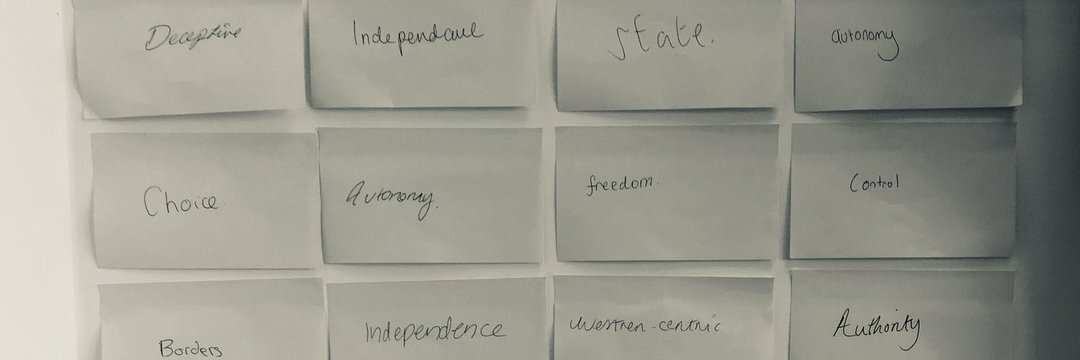 Deceptive
Independance
State.
autonomy
Choice
Autonomy.
freedom.
Control
Borders
Independence
Westren-centric
Authority